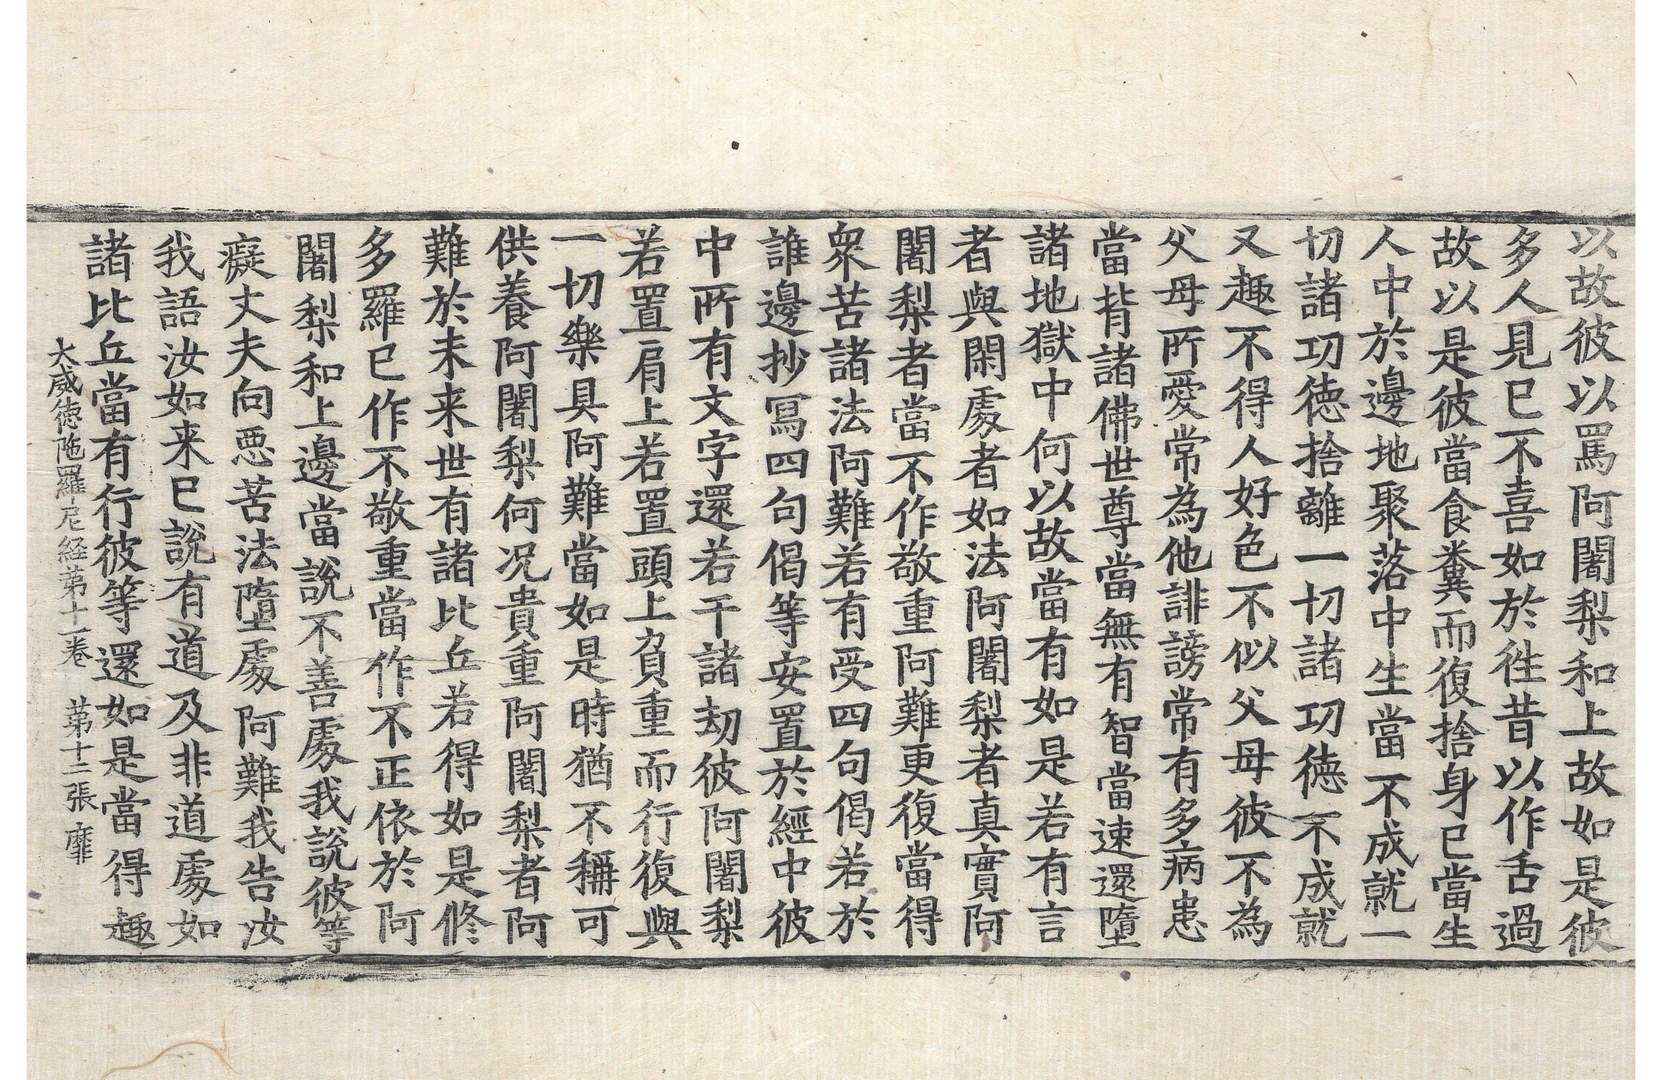 以故彼以罵阿闍梨和上故如是彼
多人見已不喜如於徃昔以作舌過
故以是彼當食糞而復捨身已當生
人中於邊地聚落中生當不成就一
切諸功徳捨離一切諸功徳不成就
又趣不得人好色不似父母彼不為
父母所愛常為他誹謗常有多病患
當背諸佛世尊當無有智當速還墮
諸地獄中何以故當有如是若有言
者與閑處者如法阿闍梨者真實阿
闍梨者當不作敬重阿難更復當得
衆苦諸法阿難若有受四句偈若於
誰邊抄冩四句偈等安置於經中彼
中所有文字還若干諸劫彼阿闍梨
若置肩上若置頭上負重而行復與
一切樂具阿難當如是時猶不稱可
供養阿闍梨何况貴重阿闍梨者阿
難於未来世有諸比丘若得如是修
多羅已作不敬重當作不正依於阿
闍梨和上邊當說不善處我說彼等
癡丈夫向惡苦法墮處阿難我告汝
我語汝如来已說有道及非道處如
諸比丘當有行彼等還如是當得趣
大威徳陁羅尼経第十一卷　第十二張　靡